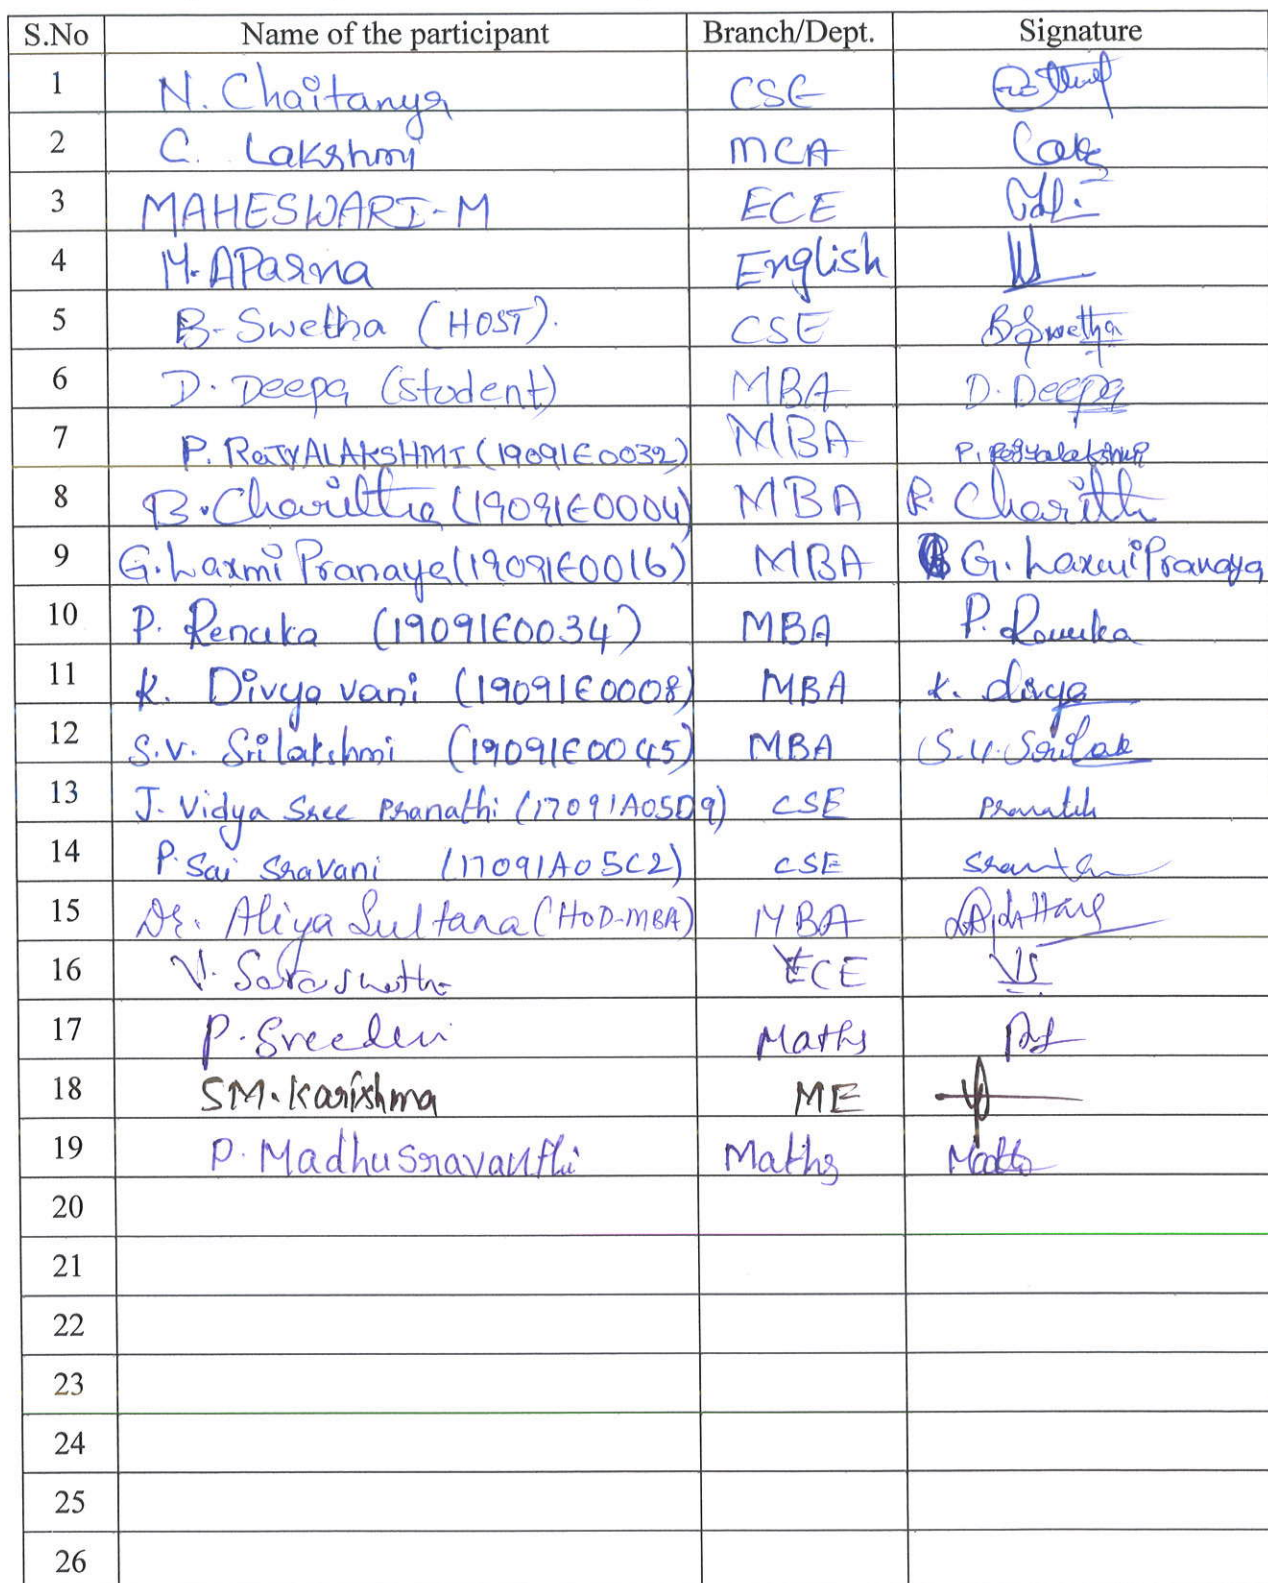 S.No Name of the participant Branch/Dept. Signature
1 N. Chaitanya CSE
2 C. Lakshmi MCA
3 MAHESWARI-M ECE
4 M. APArna English
5 B-Swetha (HOST). CSE B Swetha
6 D. Deepa (student) MBA D. Deepa
7 P. RAJYALAKSHMI (19091E0032) MBA P. Rajyalakshmi
8 B. Charitha (19091E0004) MBA Charith
9 G. Laxmi Pranaya (19091E0016) MBA G. Laxmi Pranaya
10 P. Renuka (19091E0034) MBA P. Renuka
11 K. Divya vani (19091E0008) MBA K. divya
12 S.V. Srilakshmi (19091E0045) MBA S.V. Srilak
13 J. Vidya Sree Pranathi (17091A05D9) CSE Pranathi
14 P. Sai Sravani (17091A05C2) CSE
15 Dr. Aliya Sultana (HOD-MBA) MBA
16 V. Saraswathi ECE VS
17 P. Sreedevi Maths
18 SM. Karishma ME
19 P. Madhu Sravanthi Maths
20
21
22
23
24
25
26